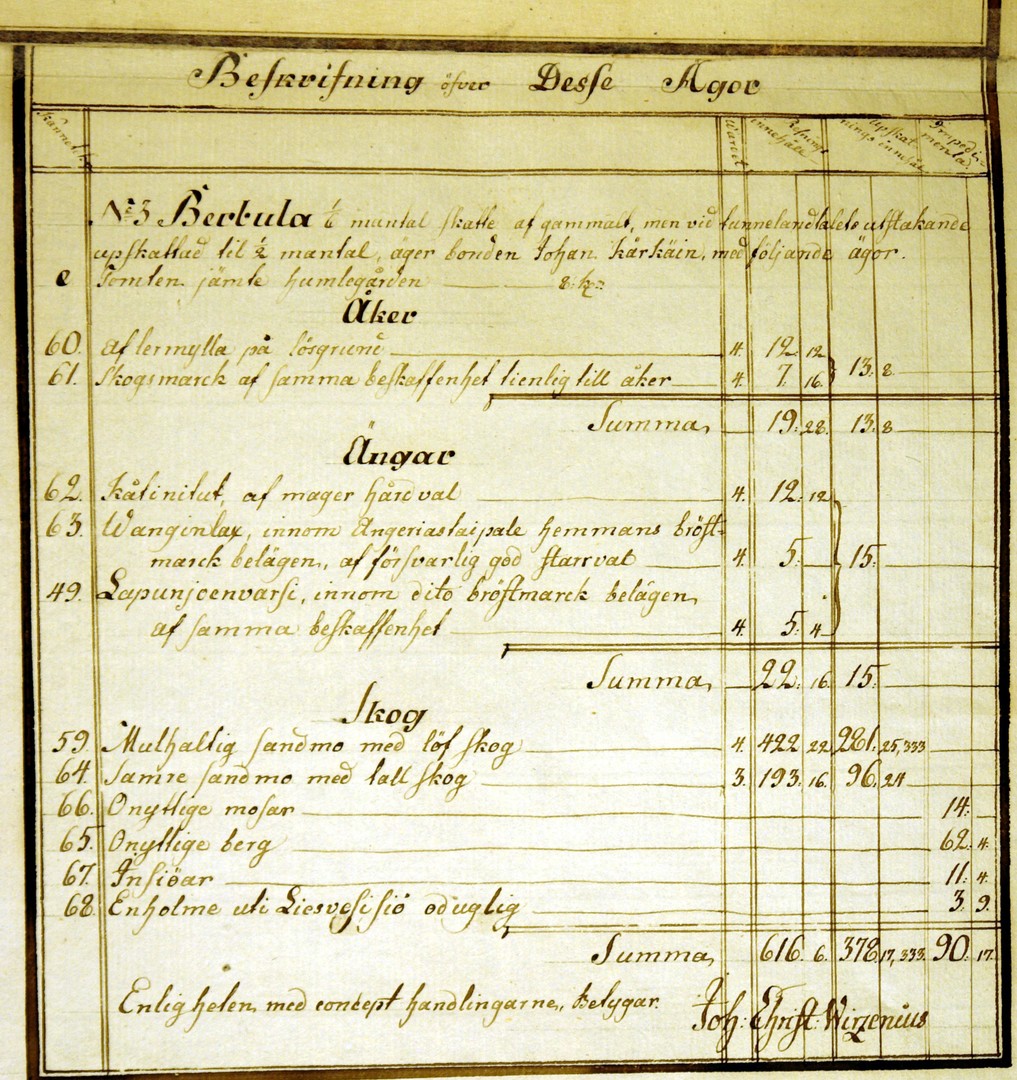 Beskrifning öfver Desse Ägor
Wäret
innehåle
Impedi-
menta.
N:3 Berbula mantal skatte af gammalt, men vid tunnelandtalets utstakande
upskattad til ½ mantal, äger bonden Johan Kärkäin, med följande ägor.
e Tomten jämte humlegården 8 k:
Åker
60. af lermylla på lösgrund 4. 12. 12
61. Skogsmarck af samma beskaffenhet tienlig till åker 4. 7. 16. 13. 8
Summa 19. 28. 13. 8
Ängar
62. Kåtinitut, af mager hårdval 4. 12. 12
63. Wanginlax, innom Angeriastaipale hemmans bröst-
marck belägen, af försvarlig god starrvat 4. 5. 15.
49. Lapunjoenvarsi, innom dito bröstmarck belägen
af samma beskaffenhet 4. 5. 4.
Summa 22. 16. 15.
Skog
59. Mulhaltig sandmo med löf skog 4. 422 22 281. 25,333
64. Sämre sandmo med tall skog 3. 193. 16. 96. 24
66. Onyttige mosar 14.
65. Onyttige berg 62. 4.
67. Insiöar 11. 4.
68. Enholme uti Liesvesi siö oduglig 3. 9.
Summa 616. 6. 378 17,333. 90. 17.
Enligheten med concept handlingarne, Betygar
Joh: Christ: Wirzenius